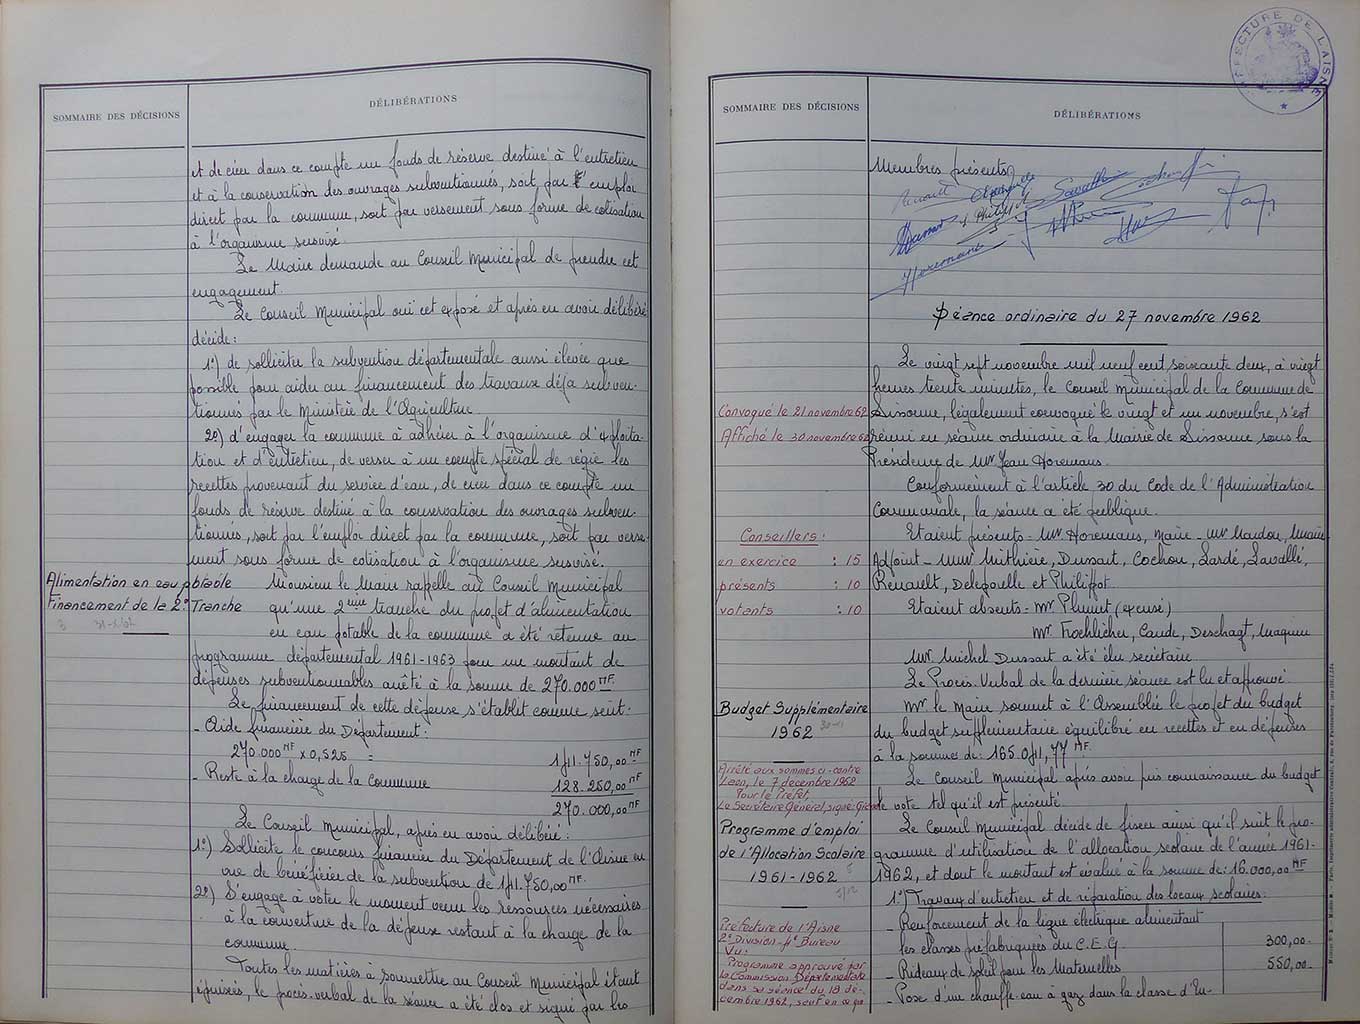 SOMMAIRE DES DÉCISIONS
DÉLIBÉRATIONS
et de créer dans ce compte un fonds de réserve destiné à l'entretien
et à la conservation des ouvrages subventionnés, soit, par l'emploi
direct par la commune, soit par versement sous forme de cotisation
à l'organisme susvisé.
Le Maire demande au Conseil Municipal de prendre cet
engagement.
Le Conseil Municipal ouï cet exposé et après en avoir délibéré
décide:
1°) de solliciter la subvention départementale aussi élevée que
possible pour aider au financement des travaux déjà subven-
tionnés par le Ministère de l'Agriculture.
2°) d'engager la commune à adhérer à l'organisme d'exploita-
tion et d'entretien, de verser à un compte spécial de régie les
recettes provenant du service d'eau, de créer dans ce compte un
fonds de réserve destiné à la conservation des ouvrages subven-
tionnés, soit par l'emploi direct par la commune, soit par verse-
ment sous forme de cotisation à l'organisme susvisé.
Alimentation en eau potable
Financement de la 2° Tranche
Monsieur le Maire rappelle au Conseil Municipal
qu'une 2ème tranche du projet d'alimentation
en eau potable de la commune a été retenue au
programme départemental 1961-1963 pour un montant de
dépenses subventionnables arrêté à la somme de 270.000 NF.
Le financement de cette dépense s'établit comme suit:
- Aide financière du Département:
270.000 NF x 0,525 = 141.750,00 NF
- Reste à la charge de la Commune 128.250,00 NF
270.000,00 NF
Le Conseil Municipal, après en avoir délibéré:
1°) Sollicite le concours financier du Département de l'Aisne en
vue de bénéficier de la subvention de 141.750,00 NF.
2°) S'engage à voter le moment venu les ressources nécessaires
à la couverture de la dépense restant à la charge de la
commune.
Toutes les matières à soumettre au Conseil Municipal étant
épuisées, le procès-verbal de la séance a été clos et signé par les
PRÉFECTURE DE L'AISNE
SOMMAIRE DES DÉCISIONS
DÉLIBÉRATIONS
Membres présents
Renault
Lavallé
Cochon
Philippot
Horemans
Séance ordinaire du 27 novembre 1962
Le vingt sept novembre mil neuf cent soixante deux, à vingt
heures trente minutes, le Conseil Municipal de la Commune de
Convoqué le 21 novembre 62
Sissonne, légalement convoqué le vingt et un novembre, s'est
Affiché le 30 novembre 62
réuni en séance ordinaire à la Mairie de Sissonne sous la
Présidence de Mr. Jean Horemans.
Conformément à l'article 30 du Code de l'Administration
Communale, la séance a été publique.
Conseillers:
en exercice : 15
présents : 10
votants : 10
Etaient présents = Mr Horemans, Maire - Mr Mardou,
Adjoint - MMrs Mithière, Dussart, Cochon, Lardé, Lavallé,
Renault, Delepoulle et Philippot.
Etaient absents = Mr Plumet (excusé)
Mr. Froehlicher, Caude, Deschagt, Maquin
Mr. Michel Dussart a été élu secrétaire
Le Procès-Verbal de la dernière séance est lu et approuvé.
Budget Supplémentaire
1962
30-11
Mr le Maire soumet à l'Assemblée le projet du budget
du budget supplémentaire équilibré en recettes et en dépenses
à la somme de: 165.041,77 NF.
Arrêté aux sommes ci-contre
Laon, le 7 décembre 1962
Pour le Préfet,
Le Secrétaire Général, signé:
Le Conseil Municipal après avoir pris connaissance du budget
le vote tel qu'il est présenté.
Programme d'emploi
de l'Allocation Scolaire
1961-1962
Le Conseil Municipal décide de fixer ainsi qu'il suit le pro-
gramme d'utilisation de l'allocation scolaire de l'année 1961-
1962, et dont le montant est évalué à la somme de: 16.000,00 NF
1°) Travaux d'entretien et de réparation des locaux scolaires:
- Renforcement de la ligne électrique alimentant
les classes préfabriquées du C.E.G. 300,00.
- Rideaux de soleil pour les Maternelles 550,00.
- Pose d'un chauffe-eau à gaz dans la classe d'En-
Préfecture de l'Aisne
2° Division-4° Bureau
Vu:
Programme approuvé par
la Commission Départementale
dans sa séance du 18 dé-
cembre 1962, sauf en ce qui